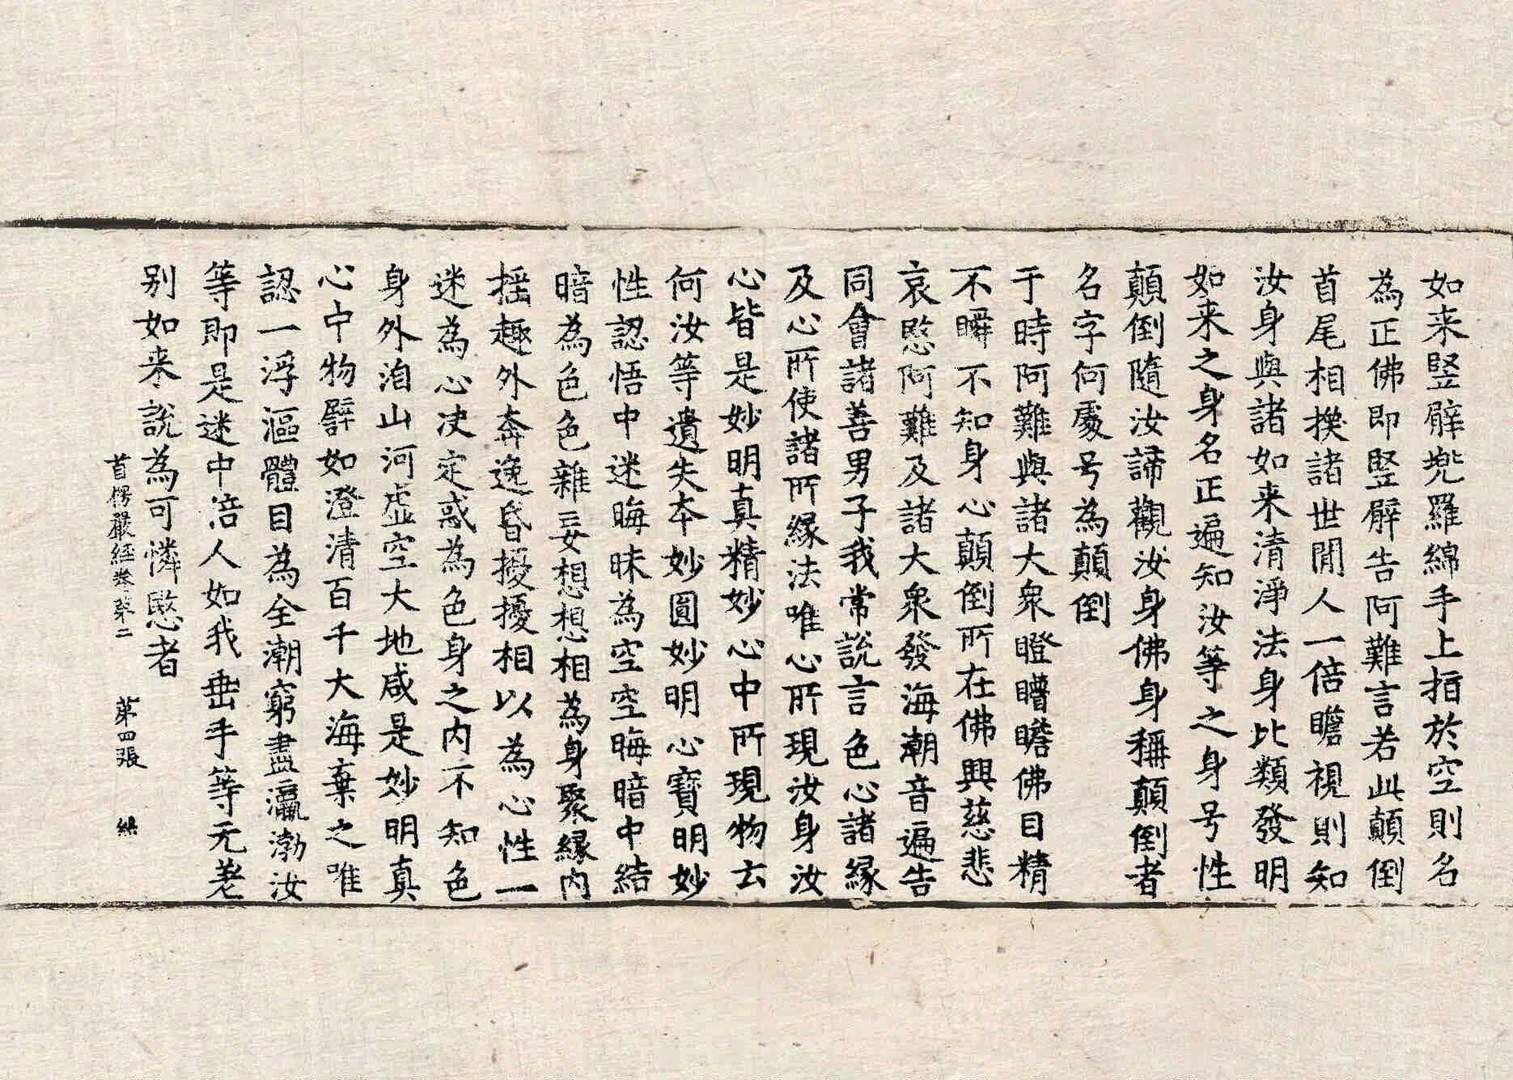 如来竪臂兜羅綿手上指於空則名
為正佛即竪臂告阿難言若此顛倒
首尾相換諸世間人一倍瞻視則知
汝身與諸如来清淨法身比類發明
如来之身名正遍知汝等之身号性
顛倒隨汝諦觀汝身佛身稱顛倒者
名字何處号為顛倒
于時阿難與諸大衆瞪瞢瞻佛目精
不瞬不知身心顛倒所在佛興慈悲
哀愍阿難及諸大衆發海潮音遍告
同會諸善男子我常說言色心諸縁
及心所使諸所縁法唯心所現汝身汝
心皆是妙明真精妙心中所現物云
何汝等遺失本妙圓妙明心寶明妙
性認悟中迷晦昧為空空晦暗中結
暗為色色雜妄想想相為身聚縁内
揺趣外奔逸昏擾擾相以為心性一
迷為心决定惑為色身之内不知色
身外洎山河虚空大地咸是妙明真
心中物譬如澄清百千大海棄之唯
認一浮漚體目為全潮窮盡瀛渤汝
等即是迷中倍人如我垂手等无差
别如来說為可憐愍者
首愣嚴經卷第二 第四張 絲